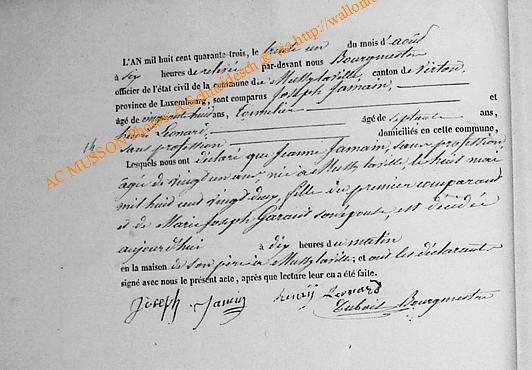 L'AN mil huit cent quarante-trois, le trente un du mois d'août
à six heures de relevée par-devant nous Bourgmestre
officier de l'état civil de la commune de Mussy-la-ville, canton de Virton,
province de Luxembourg, sont comparus Joseph Jamain,
âgé de cinquante huit ans,
henri Léonard, âgé de septante ans,
sans profession domiciliés en cette commune,
Lesquels nous ont déclaré que Jeanne Jamain, sans profession
âgée de vingt un ans née à Mussy-laville, le huit mai
mil huit cent vingt deux, fille du premier comparant
et de Marie Joseph sonépouse, est décédée
aujourd'hui à dix heures du matin
en la maison de son père à Mussy laville; et ont les déclarants
signé avec nous le présent acte, après que lecture leur en a été faite.
Joseph Jamin henrij Leonard
Dubois Bourgmestre
AC MUSSON Photos A Schaddesch @ via http://wallonie